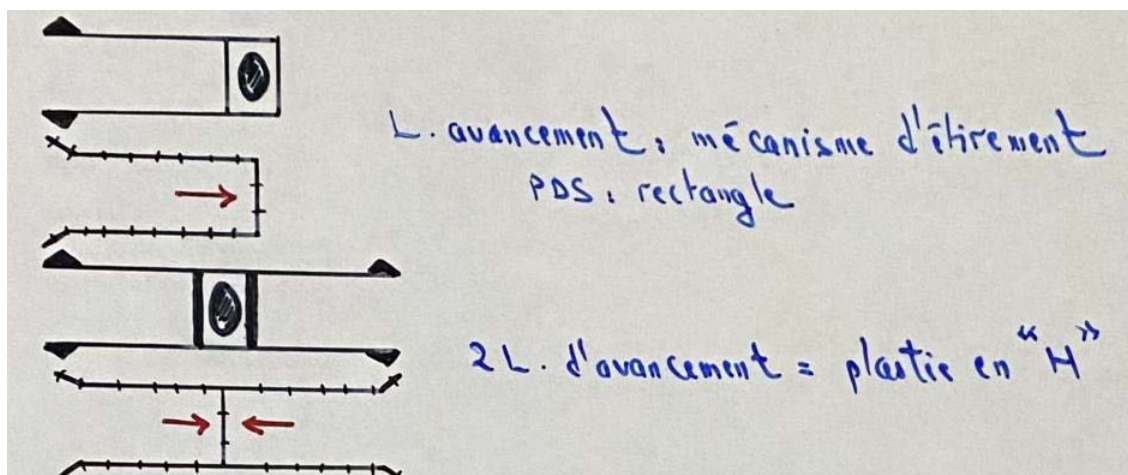 L. avancement : mécanisme d'étirement
PDS : rectangle
2 L. d'avancement = plastie en "H"